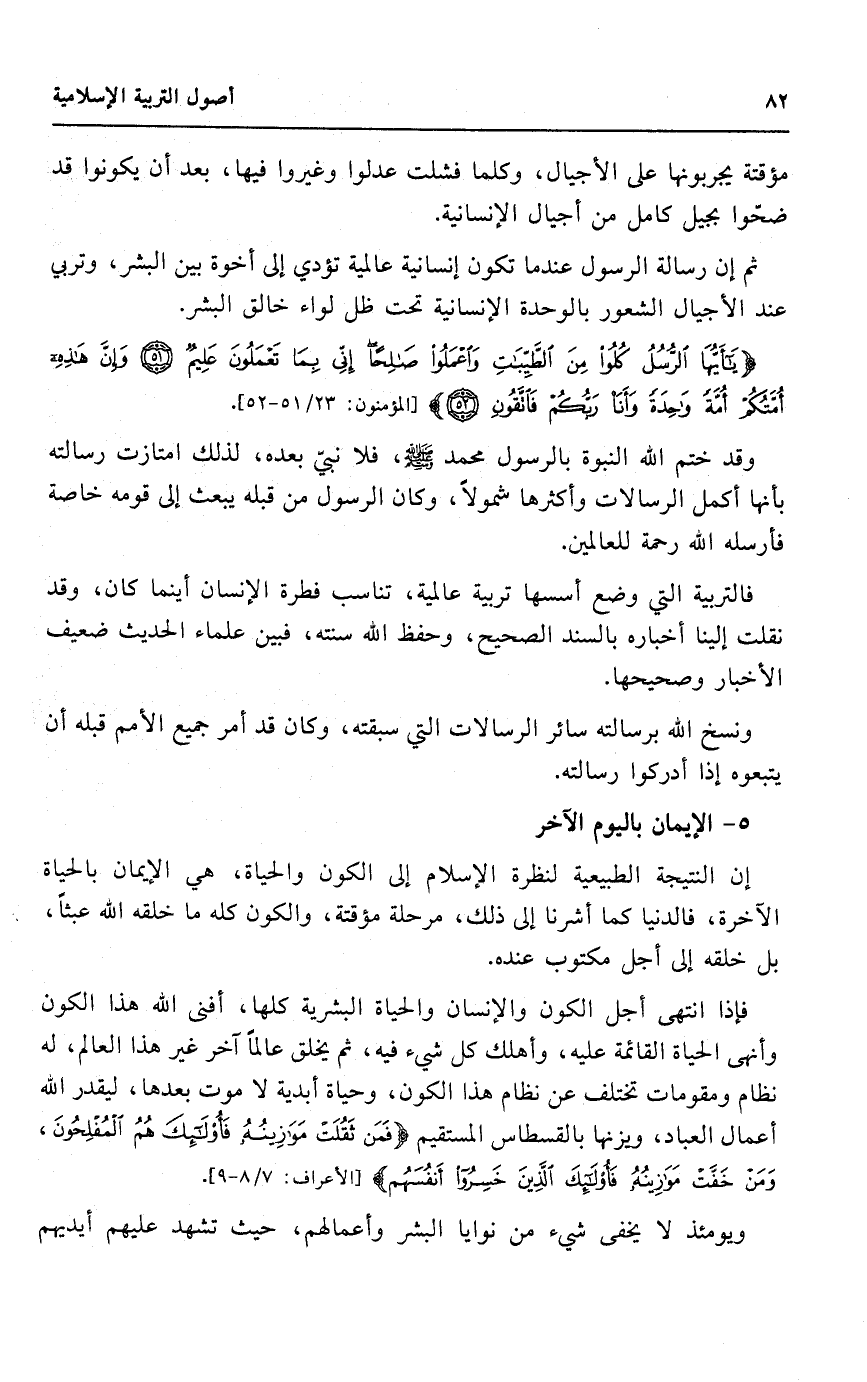 ٨٢ أصول التربية الإسلامية
مؤقتة يجربونها على الأجيال، وكلما فشلت عدلوا وغيروا فيها، بعد أن يكونوا قد
ضحّوا بجيل كامل من أجيال الإنسانية.
ثم إن رسالة الرسول عندما تكون إنسانية عالمية تؤدي إلى أخوة بين البشر، وتربي
عند الأجيال الشعور بالوحدة الإنسانية تحت ظل لواء خالق البشر.
﴿يَٰٓأَيُّهَا ٱلرُّسُلُ كُلُوا۟ مِنَ ٱلطَّيِّبَٰتِ وَٱعْمَلُوا۟ صَٰلِحًا ۖ إِنِّى بِمَا تَعْمَلُونَ عَلِيمٌ ۝٥١ وَإِنَّ هَٰذِهِۦٓ
أُمَّتُكُمْ أُمَّةً وَٰحِدَةً وَأَنَا۠ رَبُّكُمْ فَٱتَّقُونِ ۝٥٢﴾ [المؤمنون: ٢٣/ ٥١-٥٢].
وقد ختم الله النبوة بالرسول محمد ﷺ، فلا نبيّ بعده، لذلك امتازت رسالته
بأنها أكمل الرسالات وأكثرها شمولاً، وكان الرسول من قبله يبعث إلى قومه خاصة
فأرسله الله رحمة للعالمين.
فالتربية التي وضع أسسها تربية عالمية، تناسب فطرة الإنسان أينما كان، وقد
نقلت إلينا أخباره بالسند الصحيح، وحفظ الله سنته، فبين علماء الحديث ضعيف
الأخبار وصحيحها.
ونسخ الله برسالته سائر الرسالات التي سبقته، وكان قد أمر جميع الأمم قبله أن
يتبعوه إذا أدركوا رسالته.
٥- الإيمان باليوم الآخر
إن النتيجة الطبيعية لنظرة الإسلام إلى الكون والحياة، هي الإيمان بالحياة
الآخرة، فالدنيا كما أشرنا إلى ذلك، مرحلة مؤقتة، والكون كله ما خلقه الله عبثاً،
بل خلقه إلى أجل مكتوب عنده.
فإذا انتهى أجل الكون والإنسان والحياة البشرية كلها، أفنى الله هذا الكون
وأنهى الحياة القائمة عليه، وأهلك كل شيء فيه، ثم يخلق عالماً آخر غير هذا العالم، له
نظام ومقومات تختلف عن نظام هذا الكون، وحياة أبدية لا موت بعدها، ليقدر الله
أعمال العباد، ويزنها بالقسطاس المستقيم ﴿فَمَن ثَقُلَتْ مَوَٰزِينُهُۥ فَأُو۟لَٰٓئِكَ هُمُ ٱلْمُفْلِحُونَ،
وَمَنْ خَفَّتْ مَوَٰزِينُهُۥ فَأُو۟لَٰٓئِكَ ٱلَّذِينَ خَسِرُوٓا۟ أَنفُسَهُم﴾ [الأعراف: ٧/ ٨-٩].
ويومئذ لا يخفى شيء من نوايا البشر وأعمالهم، حيث تشهد عليهم أيديهم